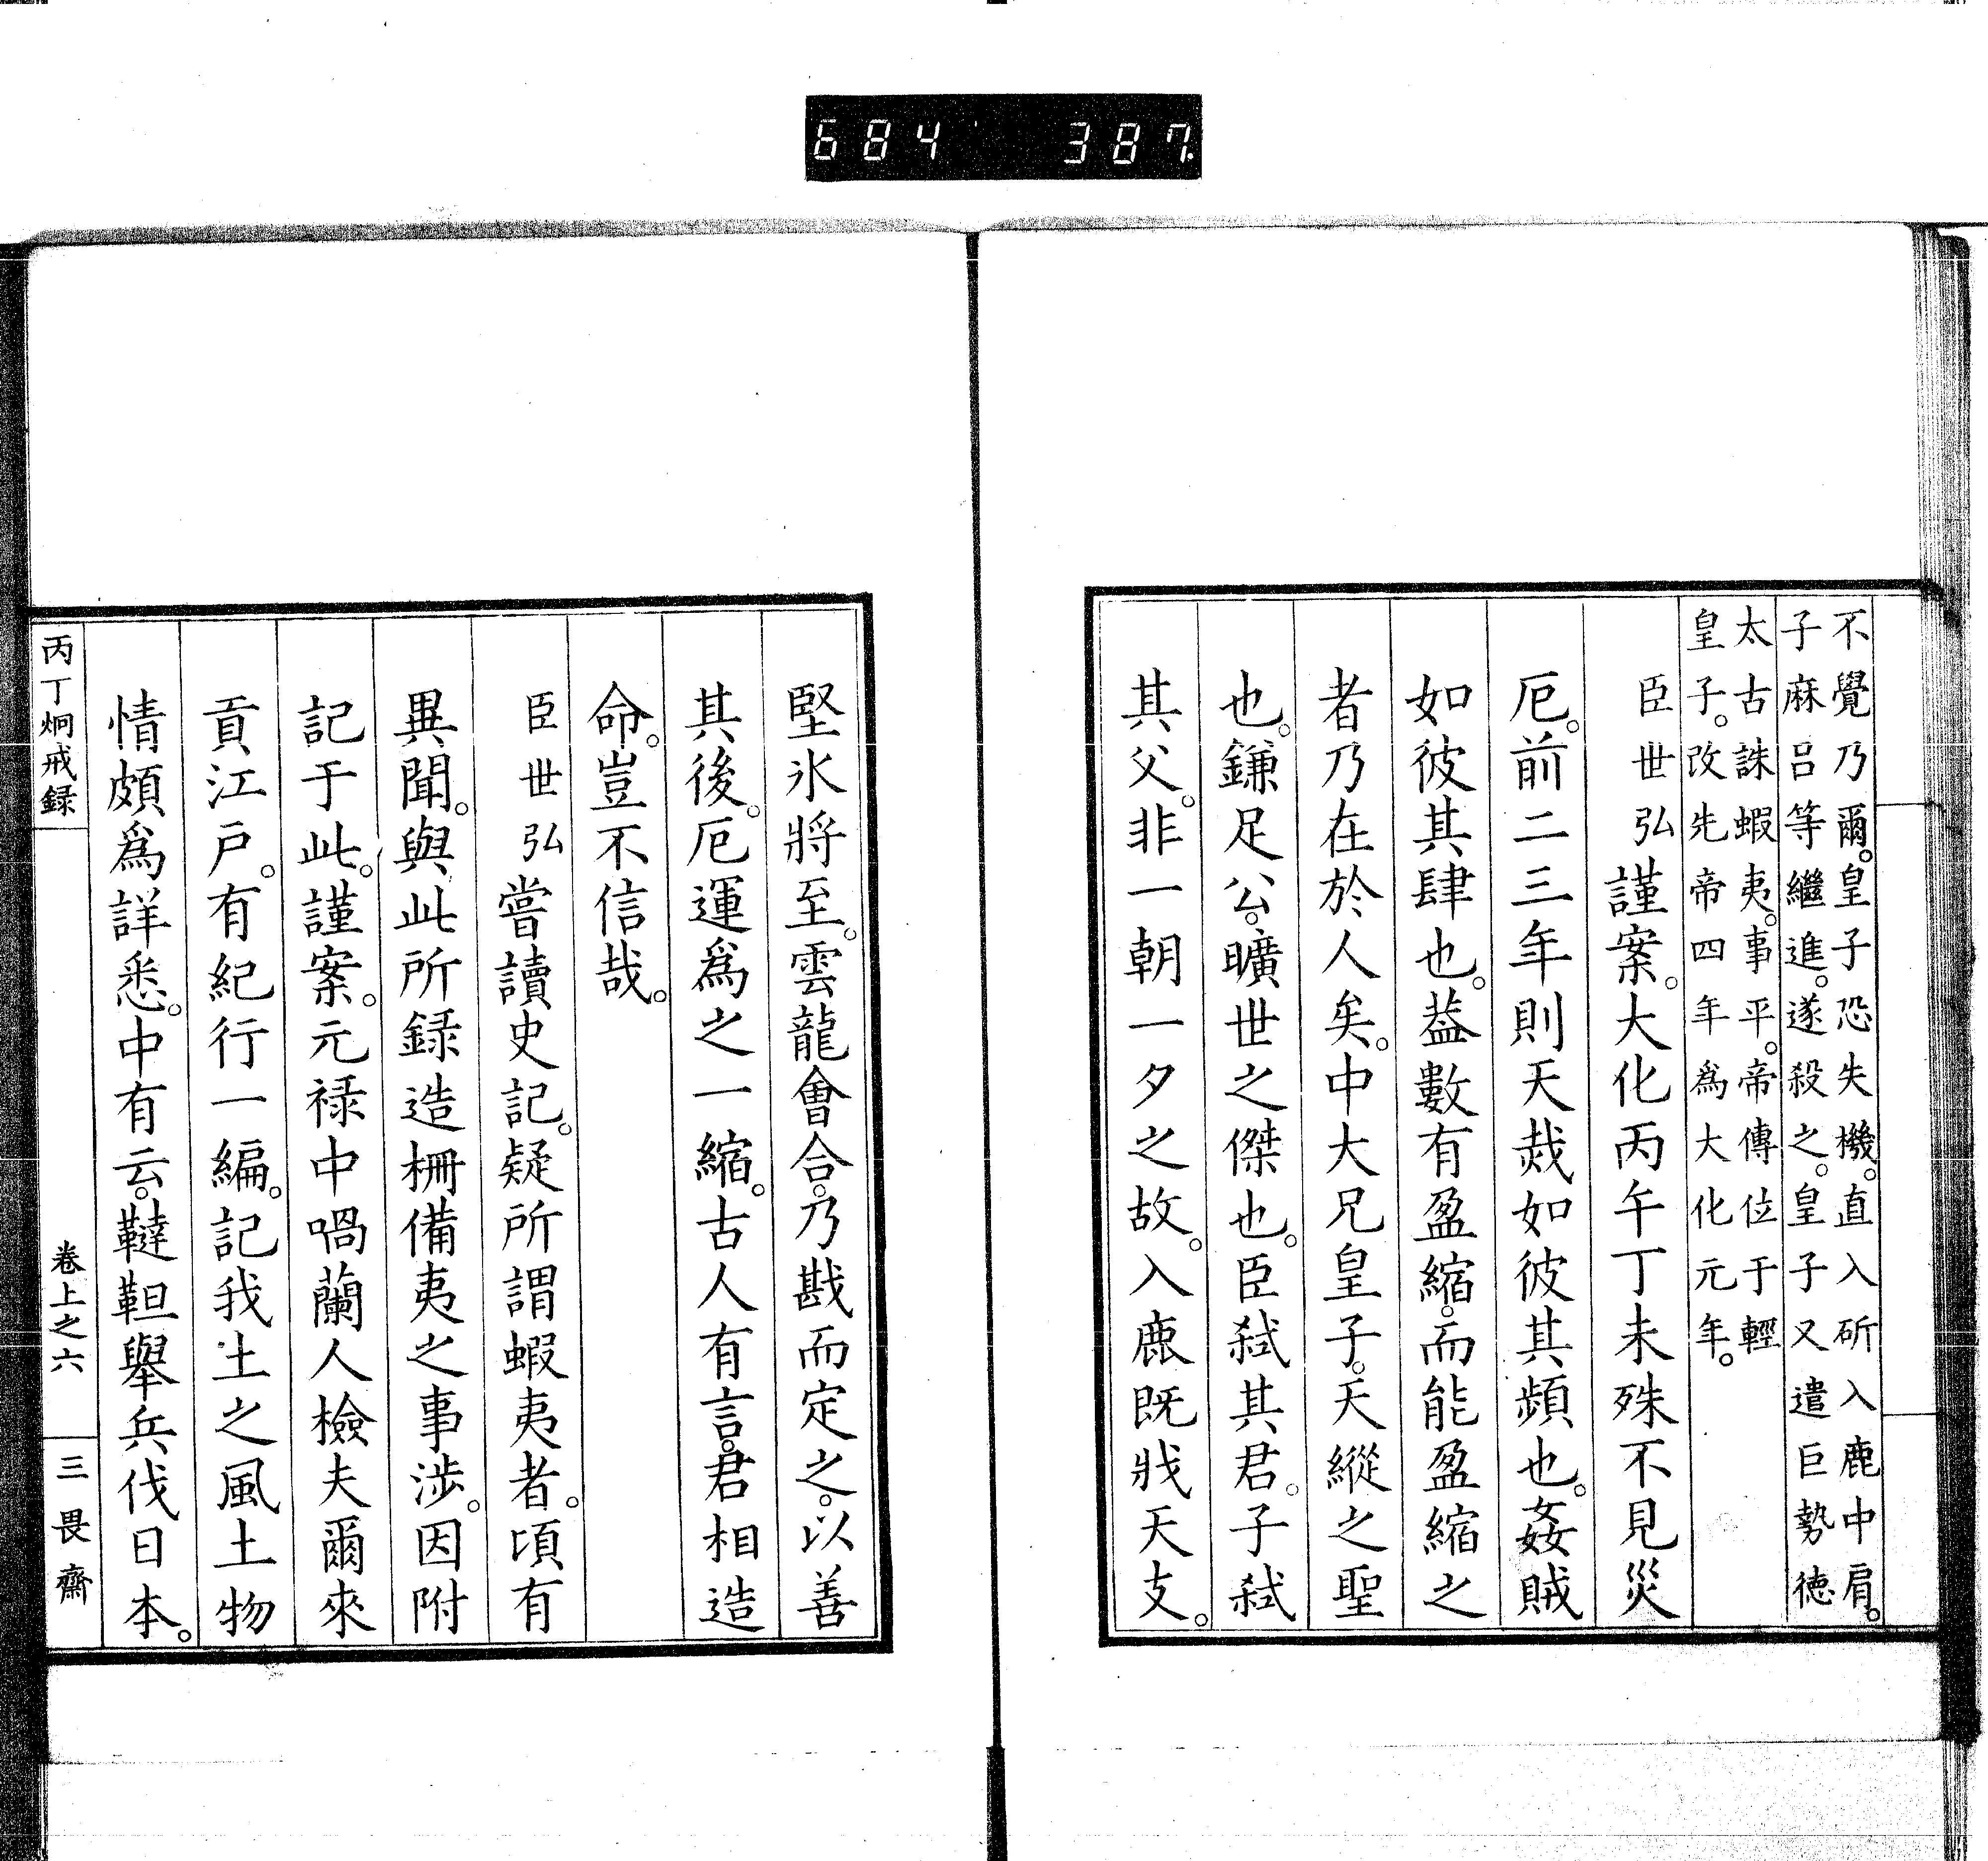 684 387.
不覺乃爾。皇子恐失機。直入斫入鹿中肩。
子麻呂等繼進。遂殺之。皇子又遣巨勢徳
太古誅蝦夷。事平。帝傳位于輕
皇子。改先帝四年為大化元年。
臣世弘謹案。大化丙午丁未殊不見災
厄。前二三年則天烖如彼其頻也。姦賊
如彼其肆也。葢數有盈縮。而能盈縮之
者乃在於人矣。中大兄皇子。天縱之聖
也。鎌足公。曠世之傑也。臣弑其君。子弑
其父。非一朝一夕之故。入鹿既戕天支。
堅氷將至。雲龍會合。乃戡而定之。以善
其後。厄運爲之一縮。古人有言。君相造
命。豈不信哉。
臣世弘嘗讀史記。疑所謂蝦夷者。頃有
異聞。與此所録造柵備夷之事渉。因附
記于此。謹案。元禄中喎蘭人檢夫爾來
貢江戸。有紀行一編。記我土之風土物
情頗爲詳悉。中有云。韃靼舉兵伐日本。
丙丁炯戒録
卷上之六
三畏齋